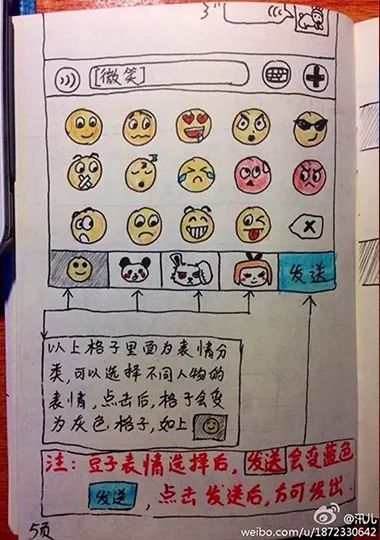 [微笑]
发送
以上格子里面为表情分
类,可以选择不同人物的
表情,点击后,格子会变
为灰色格子,如上
注:豆子表情选择后,发送会变蓝色
发送,点击发送后,方可发出.
5页
@汛儿
weibo.com/u/1872330642